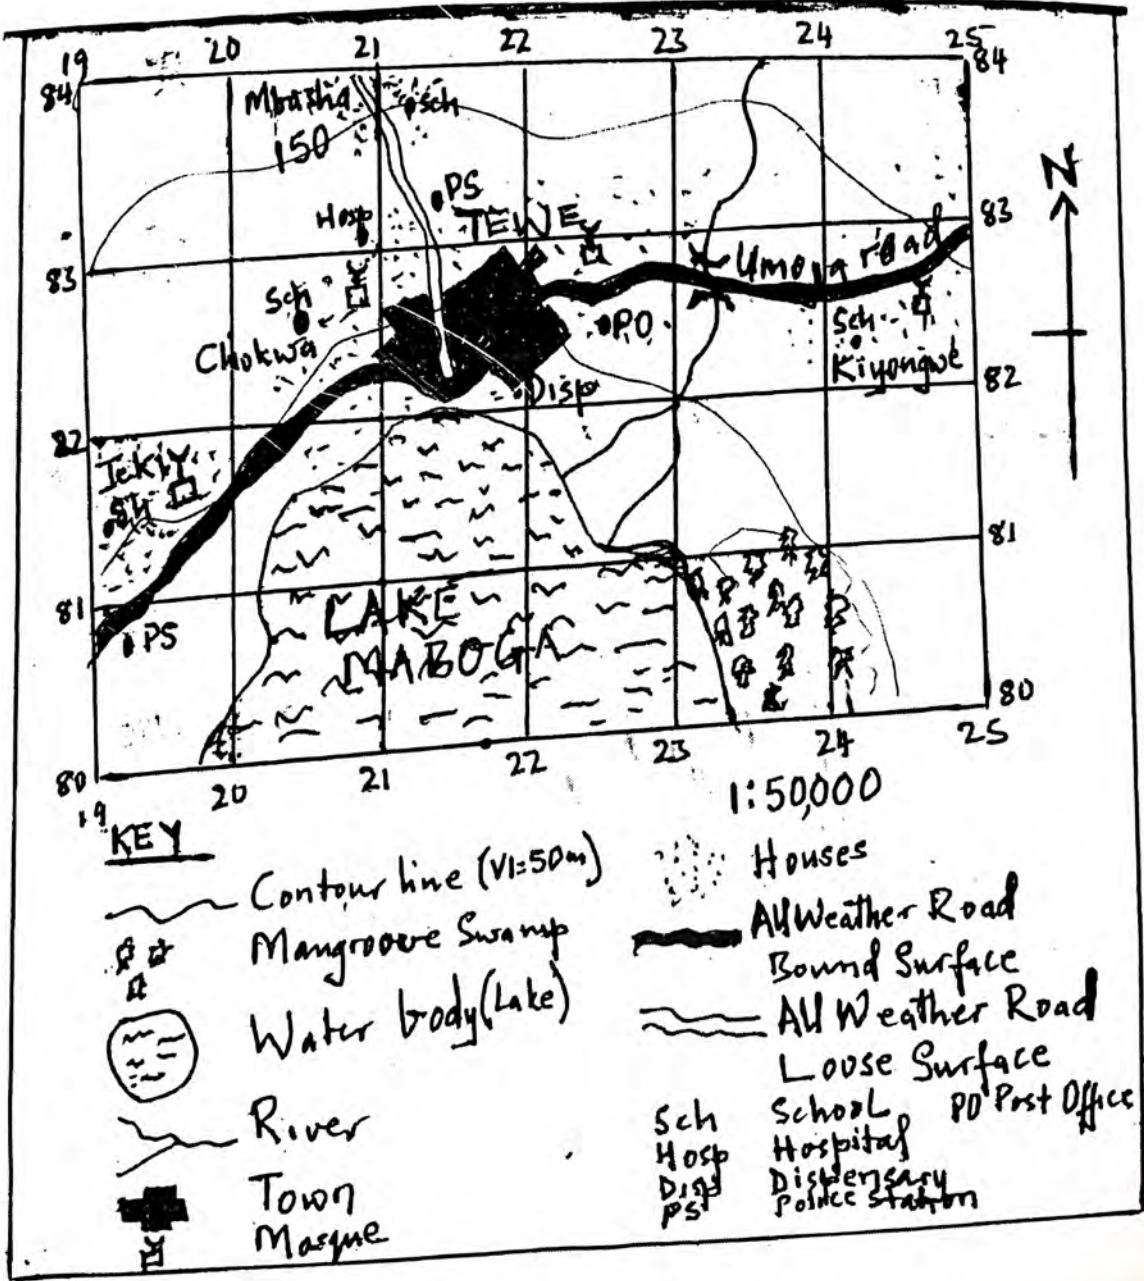 19 20 21 22 23 24 25
84 84
Mbasha Sch
150
PS
Hosp TEWE
83 83
Umoja road
Sch
PO
Sch
Chokwa
Kiyongwe
Disp
82
Sch
81 81
LAKE
MABOGA
PS
80 80
19 20 21 22 23 24 25
N
1:50,000
KEY
Contour line (VI=50m)
Mangroove Swamp
Water body (Lake)
River
Town
Mosque
Houses
All Weather Road
Bound Surface
All Weather Road
Loose Surface
Sch School PO Post Office
Hosp Hospital
Disp Dispensary
PS Police Station